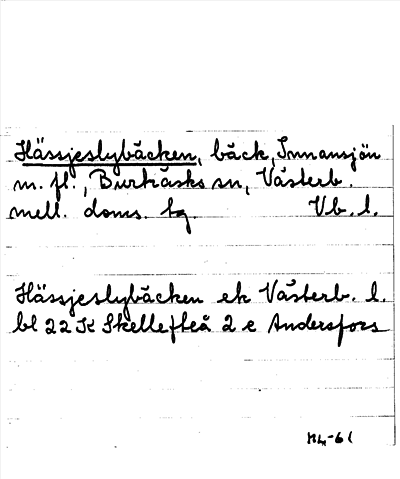 Hässjeslybäcken, bäck, Innansjön
m. fl., Burträsks sn, Västerb.
mell. doms. tg. Vb. l.
Hässjeslybäcken ek Västerb. l.
bl 22 K Skellefteå 2 e Andersfors